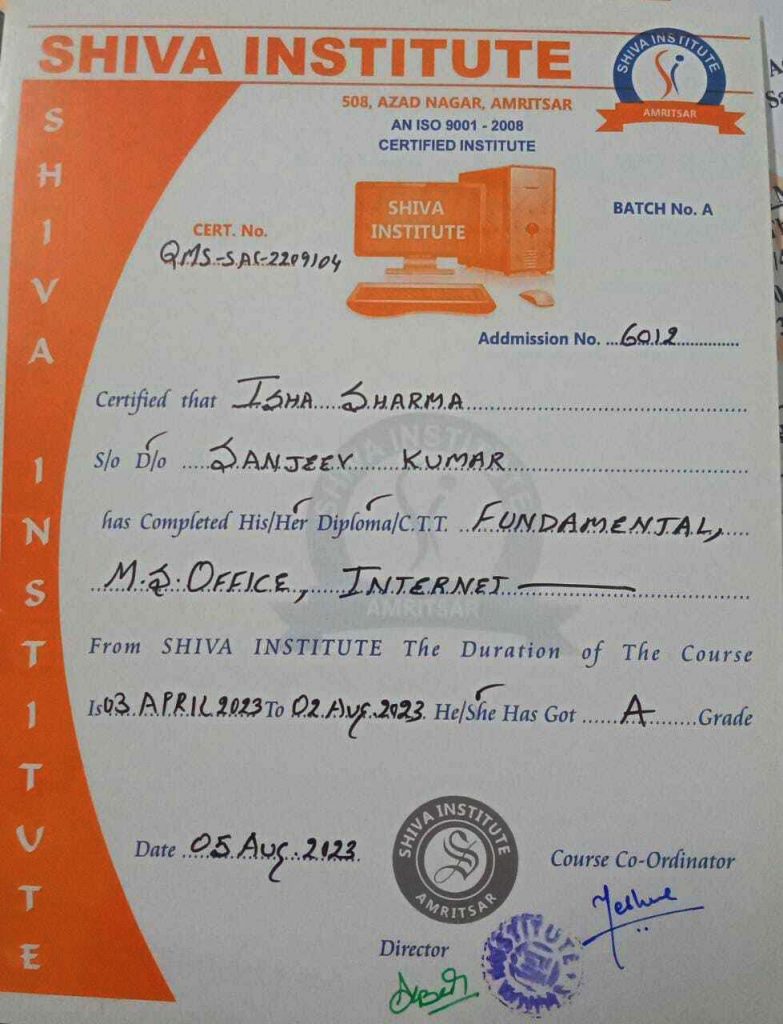 SHIVA INSTITUTE
SHIVA INSTITUTE
AMRITSAR
508, AZAD NAGAR, AMRITSAR
AN ISO 9001 - 2008
CERTIFIED INSTITUTE
SHIVA INSTITUTE
SHIVA
INSTITUTE
BATCH No. A
CERT. No.
QMS-SAC-2209104
Addmission No. ...6012..............
Certified that ISHA SHARMA
S/o D/o SANJEEV KUMAR
has Completed His/Her Diploma/C.T.T. FUNDAMENTAL,
M.S. OFFICE, INTERNET
SHIVA INSTITUTE
AMRITSAR
From SHIVA INSTITUTE The Duration of The Course
Is 03 APRIL 2023 To 02 AUG. 2023 He/She Has Got ......A.......Grade
Date 05 AUG. 2023
SHIVA INSTITUTE
S
AMRITSAR
Course Co-Ordinator
Director
INSTITUTE